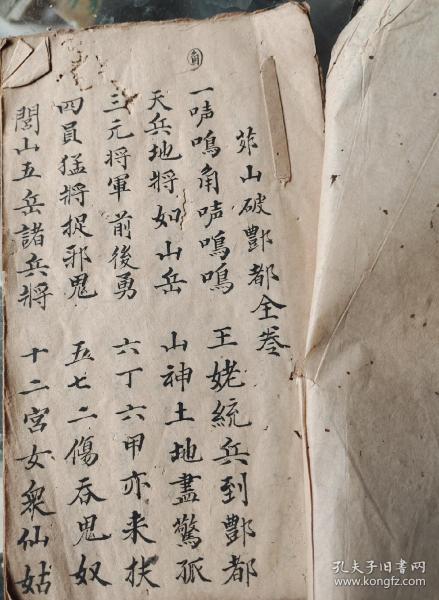 茆山破酆都全卷
一声鳴角声鳴鳴 王姥統兵到酆都
天兵地將如山岳 山神土地盡驚孤
三元將軍前後勇 六丁六甲亦来扶
四員猛將捉邪鬼 五七二傷吞鬼奴
閭山五岳諸兵將 十二宮女衆仙姑
孔夫子旧书网
www.kongfz.com